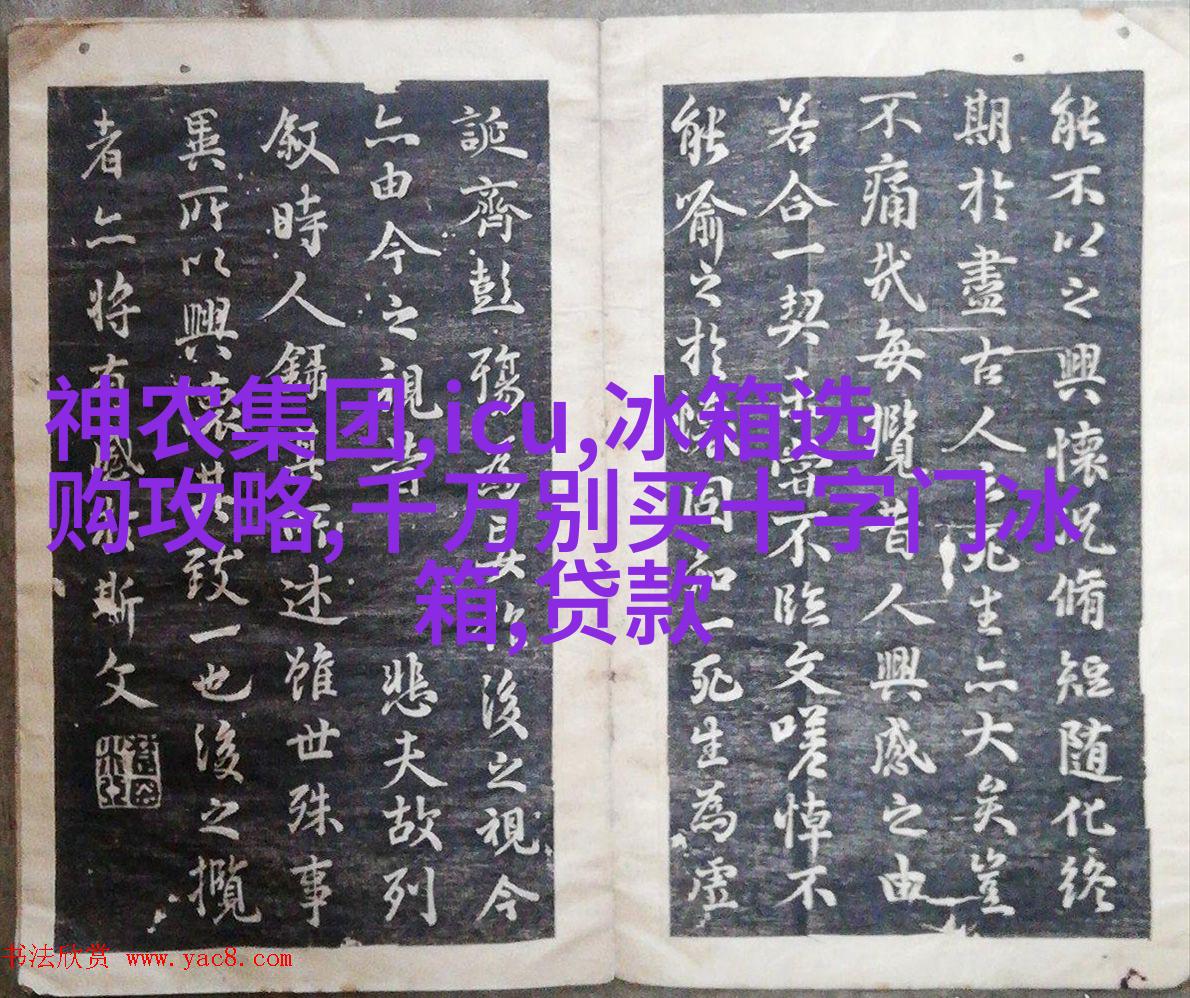 能不以之興懷況脩短随化終
期於盡古人云死生亦大矣豈
不痛哉每攬昔人興感之由
若合一契未嘗不臨文嗟悼不
能喻之於懷固知一死生為虛
誕齊彭殤為妄作後之視今
亦由今之視昔悲夫故列
敘時人錄其所述雖世殊事
異所以興懷其致一也後之攬
者亦將有感於斯文
神农集团,icu,冰箱选
购攻略,千万别买十字门冰
箱,贷款
书法欣赏 www.yac8.com